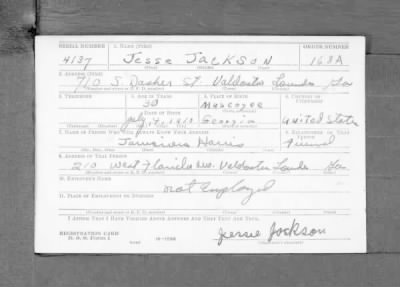 SERIAL NUMBER 1. NAME (Print) ORDER NUMBER
4137 Jesse JACKSON 168A
(First) (Middle) (Last)
2. ADDRESS (Print)
710 S. Dasher St Valdosta Lowndes Ga
3. TELEPHONE 4. AGE IN YEARS 5. PLACE OF BIRTH 6. COUNTRY OF CITIZENSHIP
30 Muscogee
DATE OF BIRTH
July 17, 1910 Georgia United States
7. NAME OF PERSON WHO WILL ALWAYS KNOW YOUR ADDRESS 8. RELATIONSHIP OF THAT PERSON
Harris Friend
9. ADDRESS OF THAT PERSON
210 West Florida Ave. Valdosta Lowndes Ga
10. EMPLOYER'S NAME
not Employed
11. PLACE OF EMPLOYMENT OR BUSINESS
I AFFIRM THAT I HAVE VERIFIED ABOVE ANSWERS AND THAT THEY ARE TRUE.
REGISTRATION CARD
D. S. S. Form 1 16-17105
Jessie Jackson
(Registrant's signature)